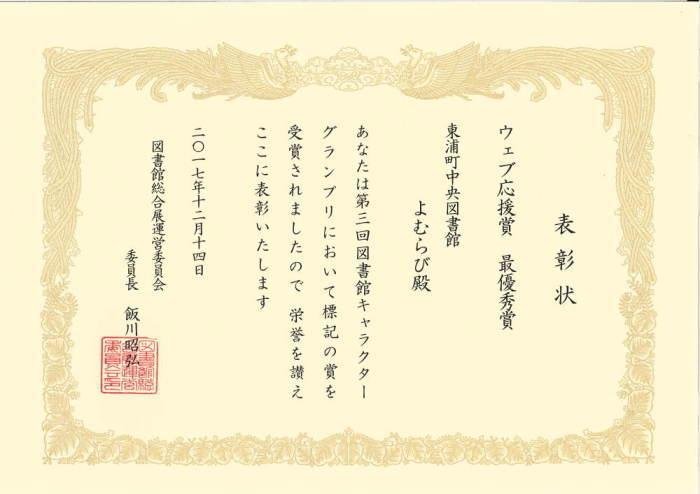 表彰状
ウェブ応援賞　最優秀賞
東浦町中央図書館
よむらび殿
あなたは第三回図書館キャラクター
グランプリにおいて標記の賞を
受賞されましたので　栄誉を讃え
ここに表彰いたします
二〇一七年十二月十四日
図書館総合展運営委員会
委員長　飯川昭弘